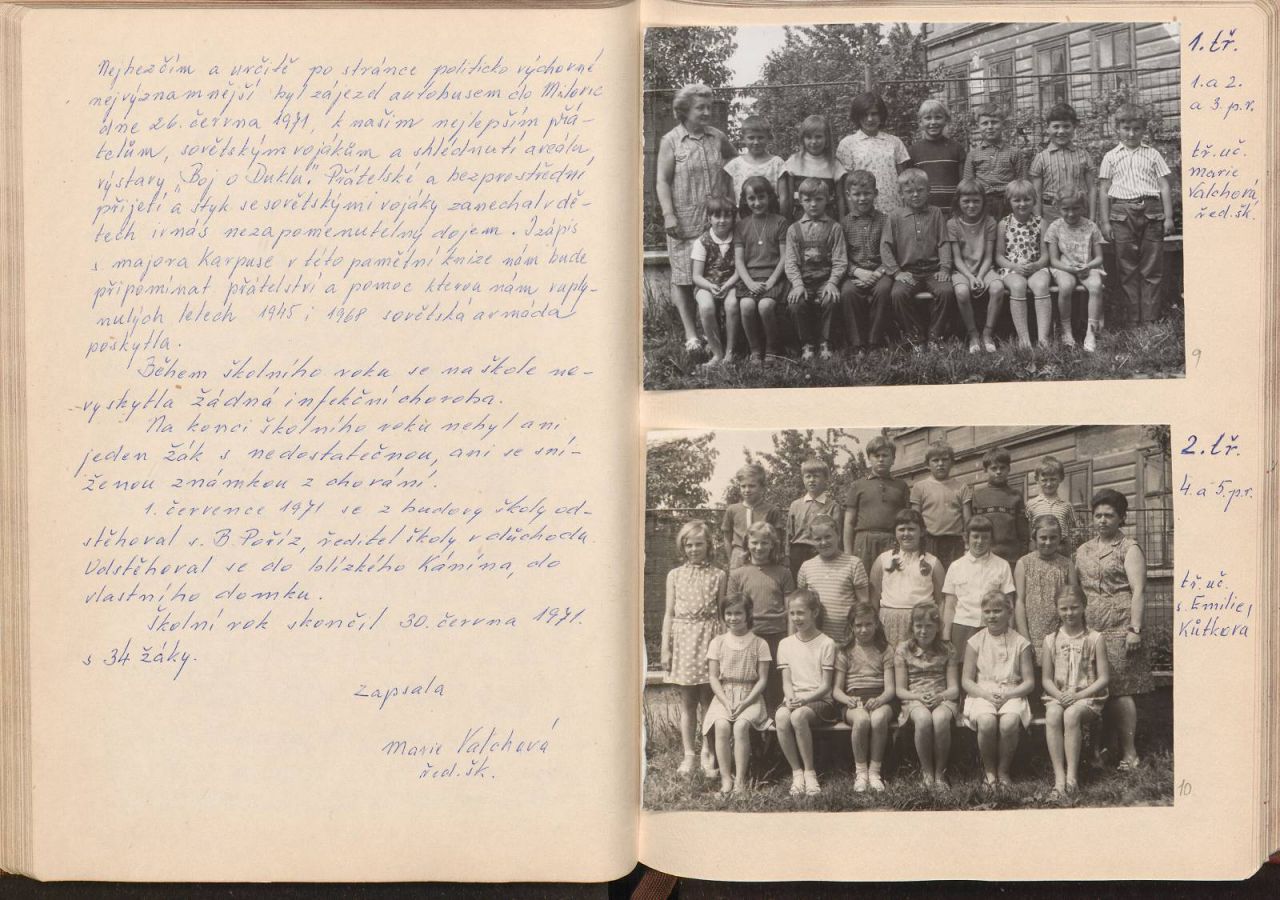 Nejhezčím a určitě po stránce politicko výchovné
nejvýznamnější byl zájezd autobusem do Milovic
dne 26. června 1971, k našim nejlepším přá-
telům, sovětským vojákům a shlédnutí areálu
výstavy "Boj o Duklu". Přátelské a bezprostřední
přijetí a styk se sovětskými vojáky zanechal v dě-
tech i v nás nezapomenutelný dojem. I zápis
s majora Karpuse v této pamětní knize nám bude
připomínat přátelství a pomoc kterou nám v uply-
nulých letech 1945 i 1968 sovětská armáda
poskytla.
Během školního roku se na škole ne-
vyskytla žádná infekční choroba.
Na konci školního roku nebyl ani
jeden žák s nedostatečnou, ani se sní-
ženou známkou z chování.
1. července 1971 se z budovy školy od-
stěhoval s. B. Poříz, ředitel školy v důchodu.
Odstěhoval se do blízkého Kánína, do
vlastního domku.
Školní rok skončil 30. června 1971.
s 34 žáky.
Zapsala
Marie Valchová
řed. šk.
1. tř.
1. a 2.
a 3. p. r.
tř. uč.
Marie
Valchová,
řed. šk.
9
2. tř.
4. a 5. p. r.
tř. uč.
s. Emilie
Kůtková
10